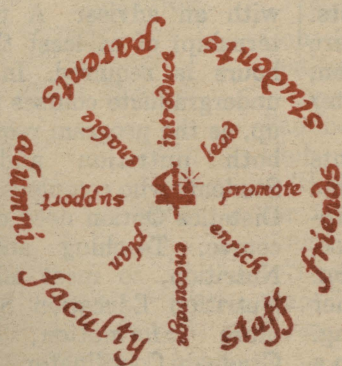 parents
students
friends
staff
faculty
alumni
introduce
lead
promote
enrich
encourage
plan
support
enable